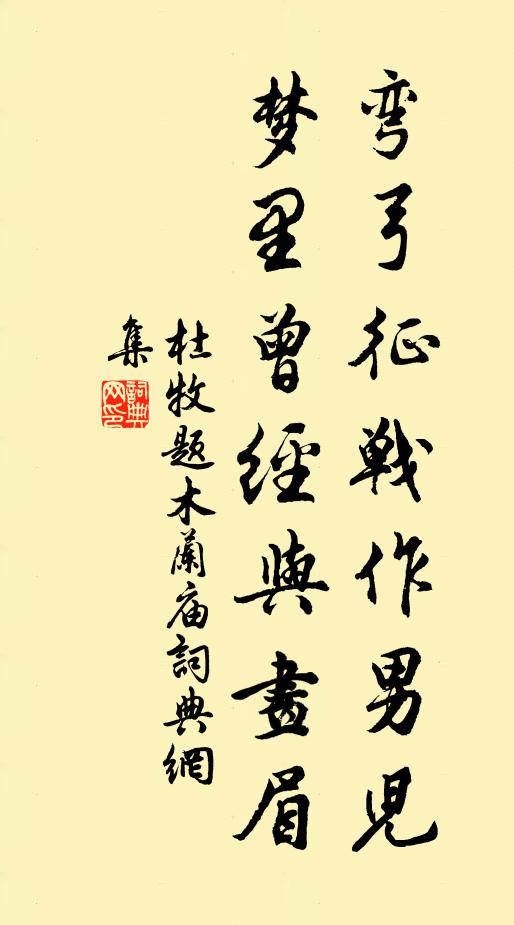 弯弓征戰作男児
梦里曾經與畫眉
杜牧题木蘭庙詞典網
集
詞典网印